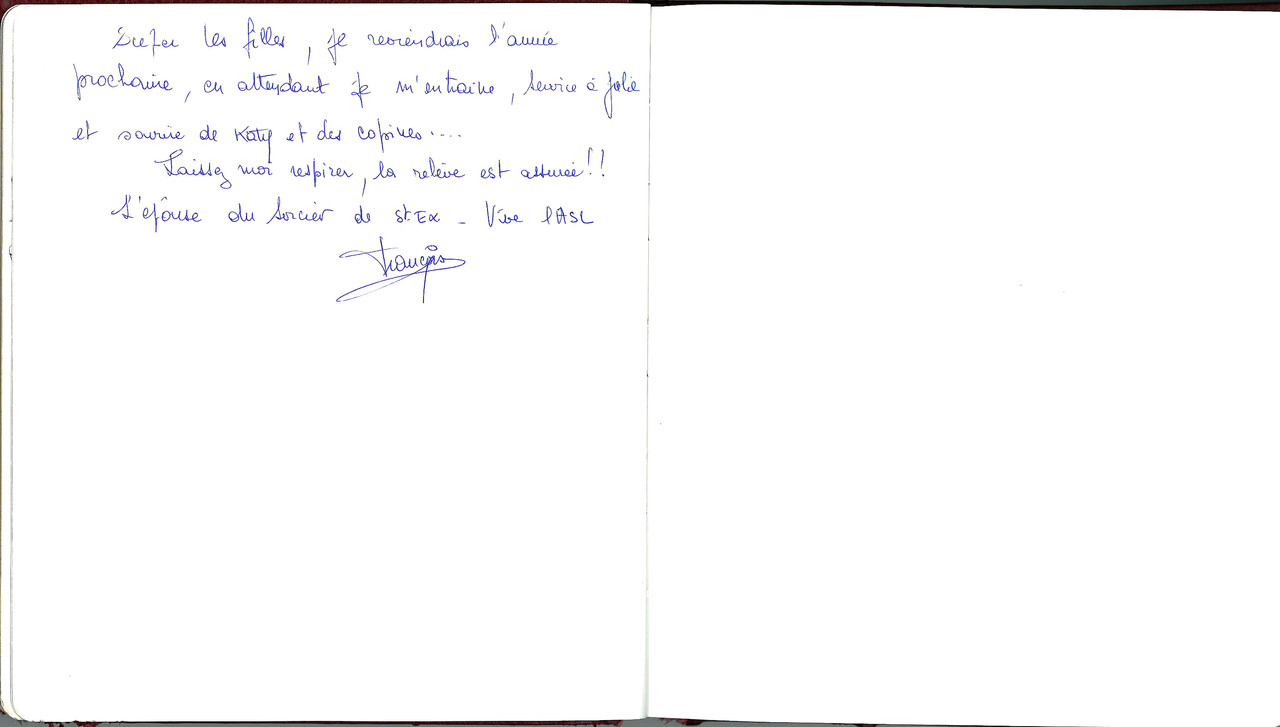 Super les filles, je reviendrais l'année
prochaine, en attendant je m'entraine, service à Jolie
et sourire de Katy et des copines....
Laissez moi respirer, la relève est assurée!!
L'épouse du Sorcier de St. Ex - Vive l'ASL